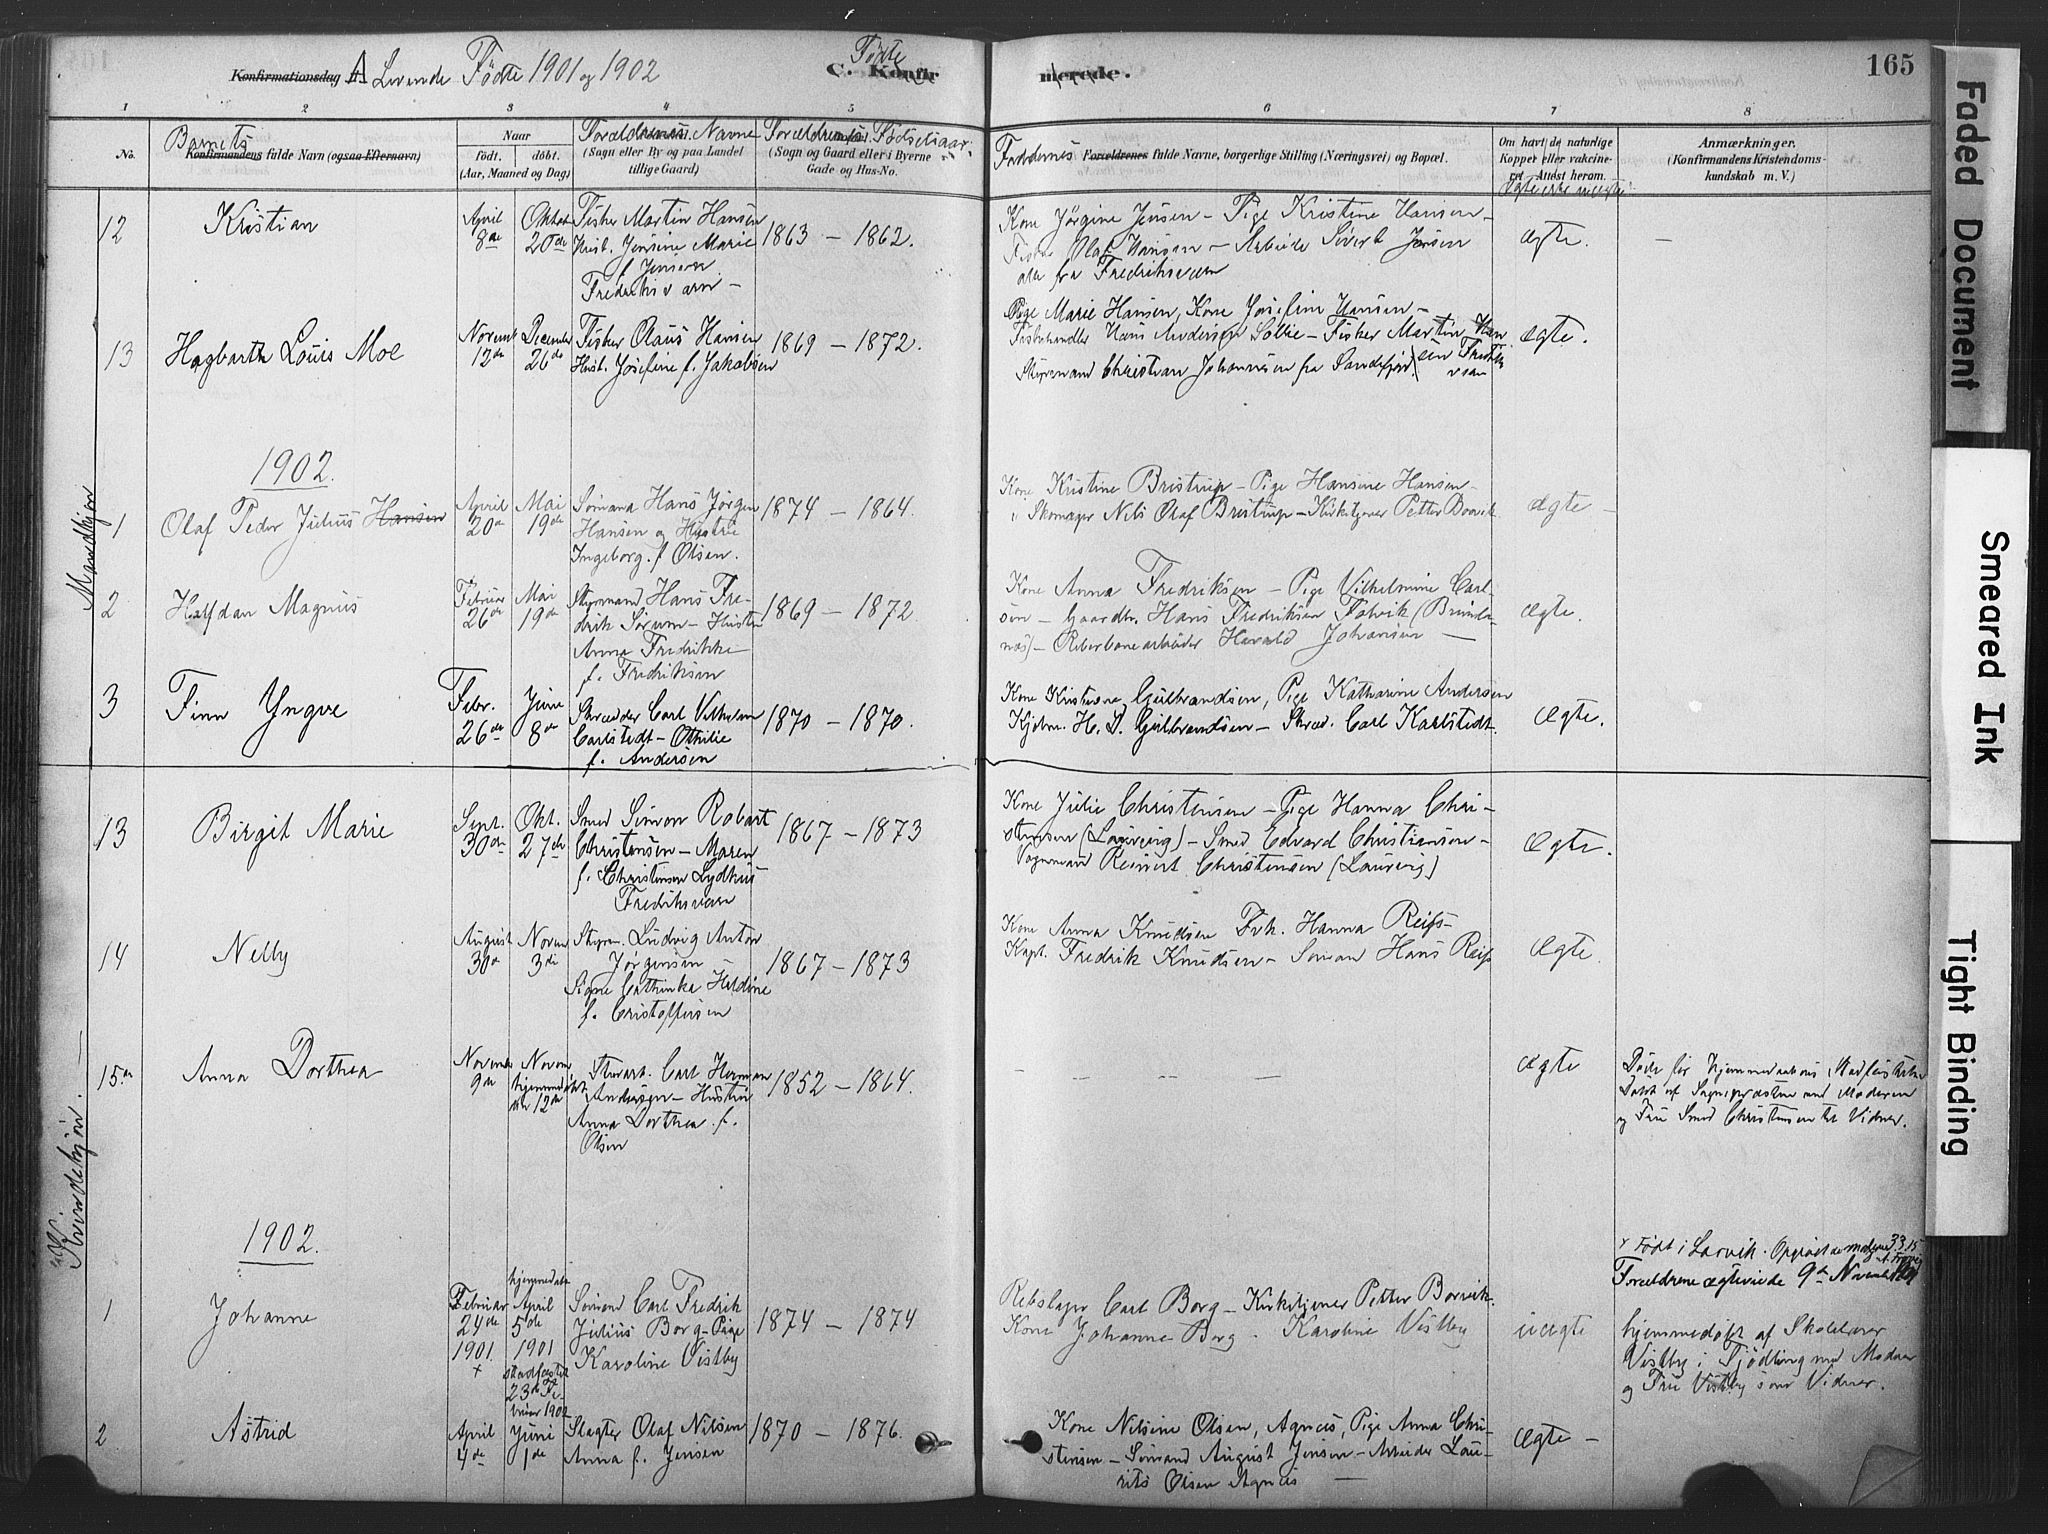 Konfirmationsdag d. A Levende Fødte 1901 og 1902
Fødte
C. Konfirmerede.
165
1 2 3 4 5 6 7 8
No.
Barnets
Konfirmandens fulde Navn (ogsaa Efternavn)
Naar
født. døbt.
(Aar, Maaned og Dag)
Forældrenes Navne
(Sogn eller By og paa Landet
tillige Gaard)
Forældrenes Fødselsaar.
(Sogn og Gaard eller i Byerne
Gade og Hus-No.
Faddernes Forældrenes fulde Navne, borgerlige Stilling (Næringsvei) og Bopæl.
Om havt de naturlige
Kopper eller vakcine-
ret. Attest herom.
Ægte eller uægte.
Anmærkninger.
(Konfirmandens Kristendoms-
kundskab m. V.)
Mandkjøn
12 Kristian
April
8de
Oktob
20de
Fisker Martin Hansen
Hust. Jensine Marie
f. Jensen
Fredriksværn –
1863 – 1862.
Kone Jørgine Jensen – Pige Kristine Hansen –
Fisker Olaf Hansen – Arbeide Sivert Jensen
alle fra Fredriksværn
ægte.
–
13 Hagbarth Louis Moe
Novemb
12de
December
26de
Fisker Olaus Hansen
Hust. Josefine f. Jakobsen
1869 – 1872.
Pige Marie Hansen, Kone Josefine Hansen –
Fiskehandler Hans Andersen Sollie – Fisker Martin Han
Styrmand Christian Johannesen fra Sandefjord. sen Fredriks
værn
ægte.
1902.
1 Olaf Peder Julius Hansen
April
20de
Mai
19de
Sømand Hans Jørgen
Hansen og Hustru
Ingeborg f. Olsen.
1874 – 1864.
Kone Kristine Bristrup – Pige Hansine Hansen –
" Skomager Nils Olaf Bristrup – Kirketjener Petter Borvik.
Ægte –
2 Halfdan Magnus
Februar
26de
Mai
19de
Styrmand Hans Fre-
drik Sørum – Hustru
Anna Fredrikke
f. Fredriksen
1869 – 1872
Kone Anna Fredriksen – Pige Vilhelmine Carl-
sen – Gaardbr. Hans Fredriksen Falvik (Brunla-
næs) – Reberbanearbeider Harald Johansen –
Ægte.
3 Finn Yngve
Febr.
26de
Juni
8de
Skrædder Carl Vilhelm
Carlstedt – Othilie
f. Andersen
1870 – 1870.
Kone Kristiane Gulbrandsen, Pige Katharine Andersen
Kjøbm. H. J. Gulbrandsen – Skræd. Carl Karlstedt.
Ægte.
Kvindekjøn.
13 Birgit Marie
Sept.
30de
Okt.
27de
Smed Simon Robart
Christensen – Maren
f. Christensen Lydhus
Fredriksværn
1867 – 1873
Kone Julie Christensen – Pige Hanna Chri-
stensen (Laurvig) – Smed Edvard Christiansen –
Vognmand Reinert Christensen (Laurvig)
Ægte.
14 Nelly
August
30de
Novem
3de
Styrm. Ludvig Anton
Jørgensen
Signe Cathinka Heldine
f. Cristoffersen
1867 – 1873
Kone Anna Knudsen Frk. Hanna Reifs –
Kapt. Fredrik Knudsen – Sømand Hans Reifs
Ægte.
15en Anna Dorthea
Novemb
9de
Novem
hjemmedøbt
den 12de
Stuvert. Carl Herman
Andersen – Hustru
Anna Dorthea f.
Olsen
1852 – 1864.
– – – –
ægte
Døde før Hjemmedaabens Stadfæstelse
Døbt af Sognepræsten med Moderen
og Fru Smed Christensen til Vidner.
1902.
1 Johanne
Februar
24de
1901.
+
hjemmedøbt
April
5de
1901
stadfæstet
23de Fe-
bruar 1902
Sømand Carl Fredrik
Julius Borg – Pige
Karoline Vistby
1874 – 1874
Rebslager Carl Borg – Kirketjener Petter Borvik.
Kone Johanne Borg. Karoline Vistby
uægte
+ Født i Larvik.
Forældrene ægteviede 9de November
hjemmedøbt af Skolelærer
Vistby i Tjødling med Moder
og Fru Vistby som Vidner.
2 Astrid
April
4de
Juni
1de
Slagter Olaf Nilsen
Anna f. Jensen
1870 – 1876.
Kone Nilsine Olsen, Agnæs, Pige Anna Chri-
stensen – Sømand August Jensen – Arbeider Lau-
rits Olsen Agnæs –
Ægte –
Faded Document
Smeared Ink
Tight Binding